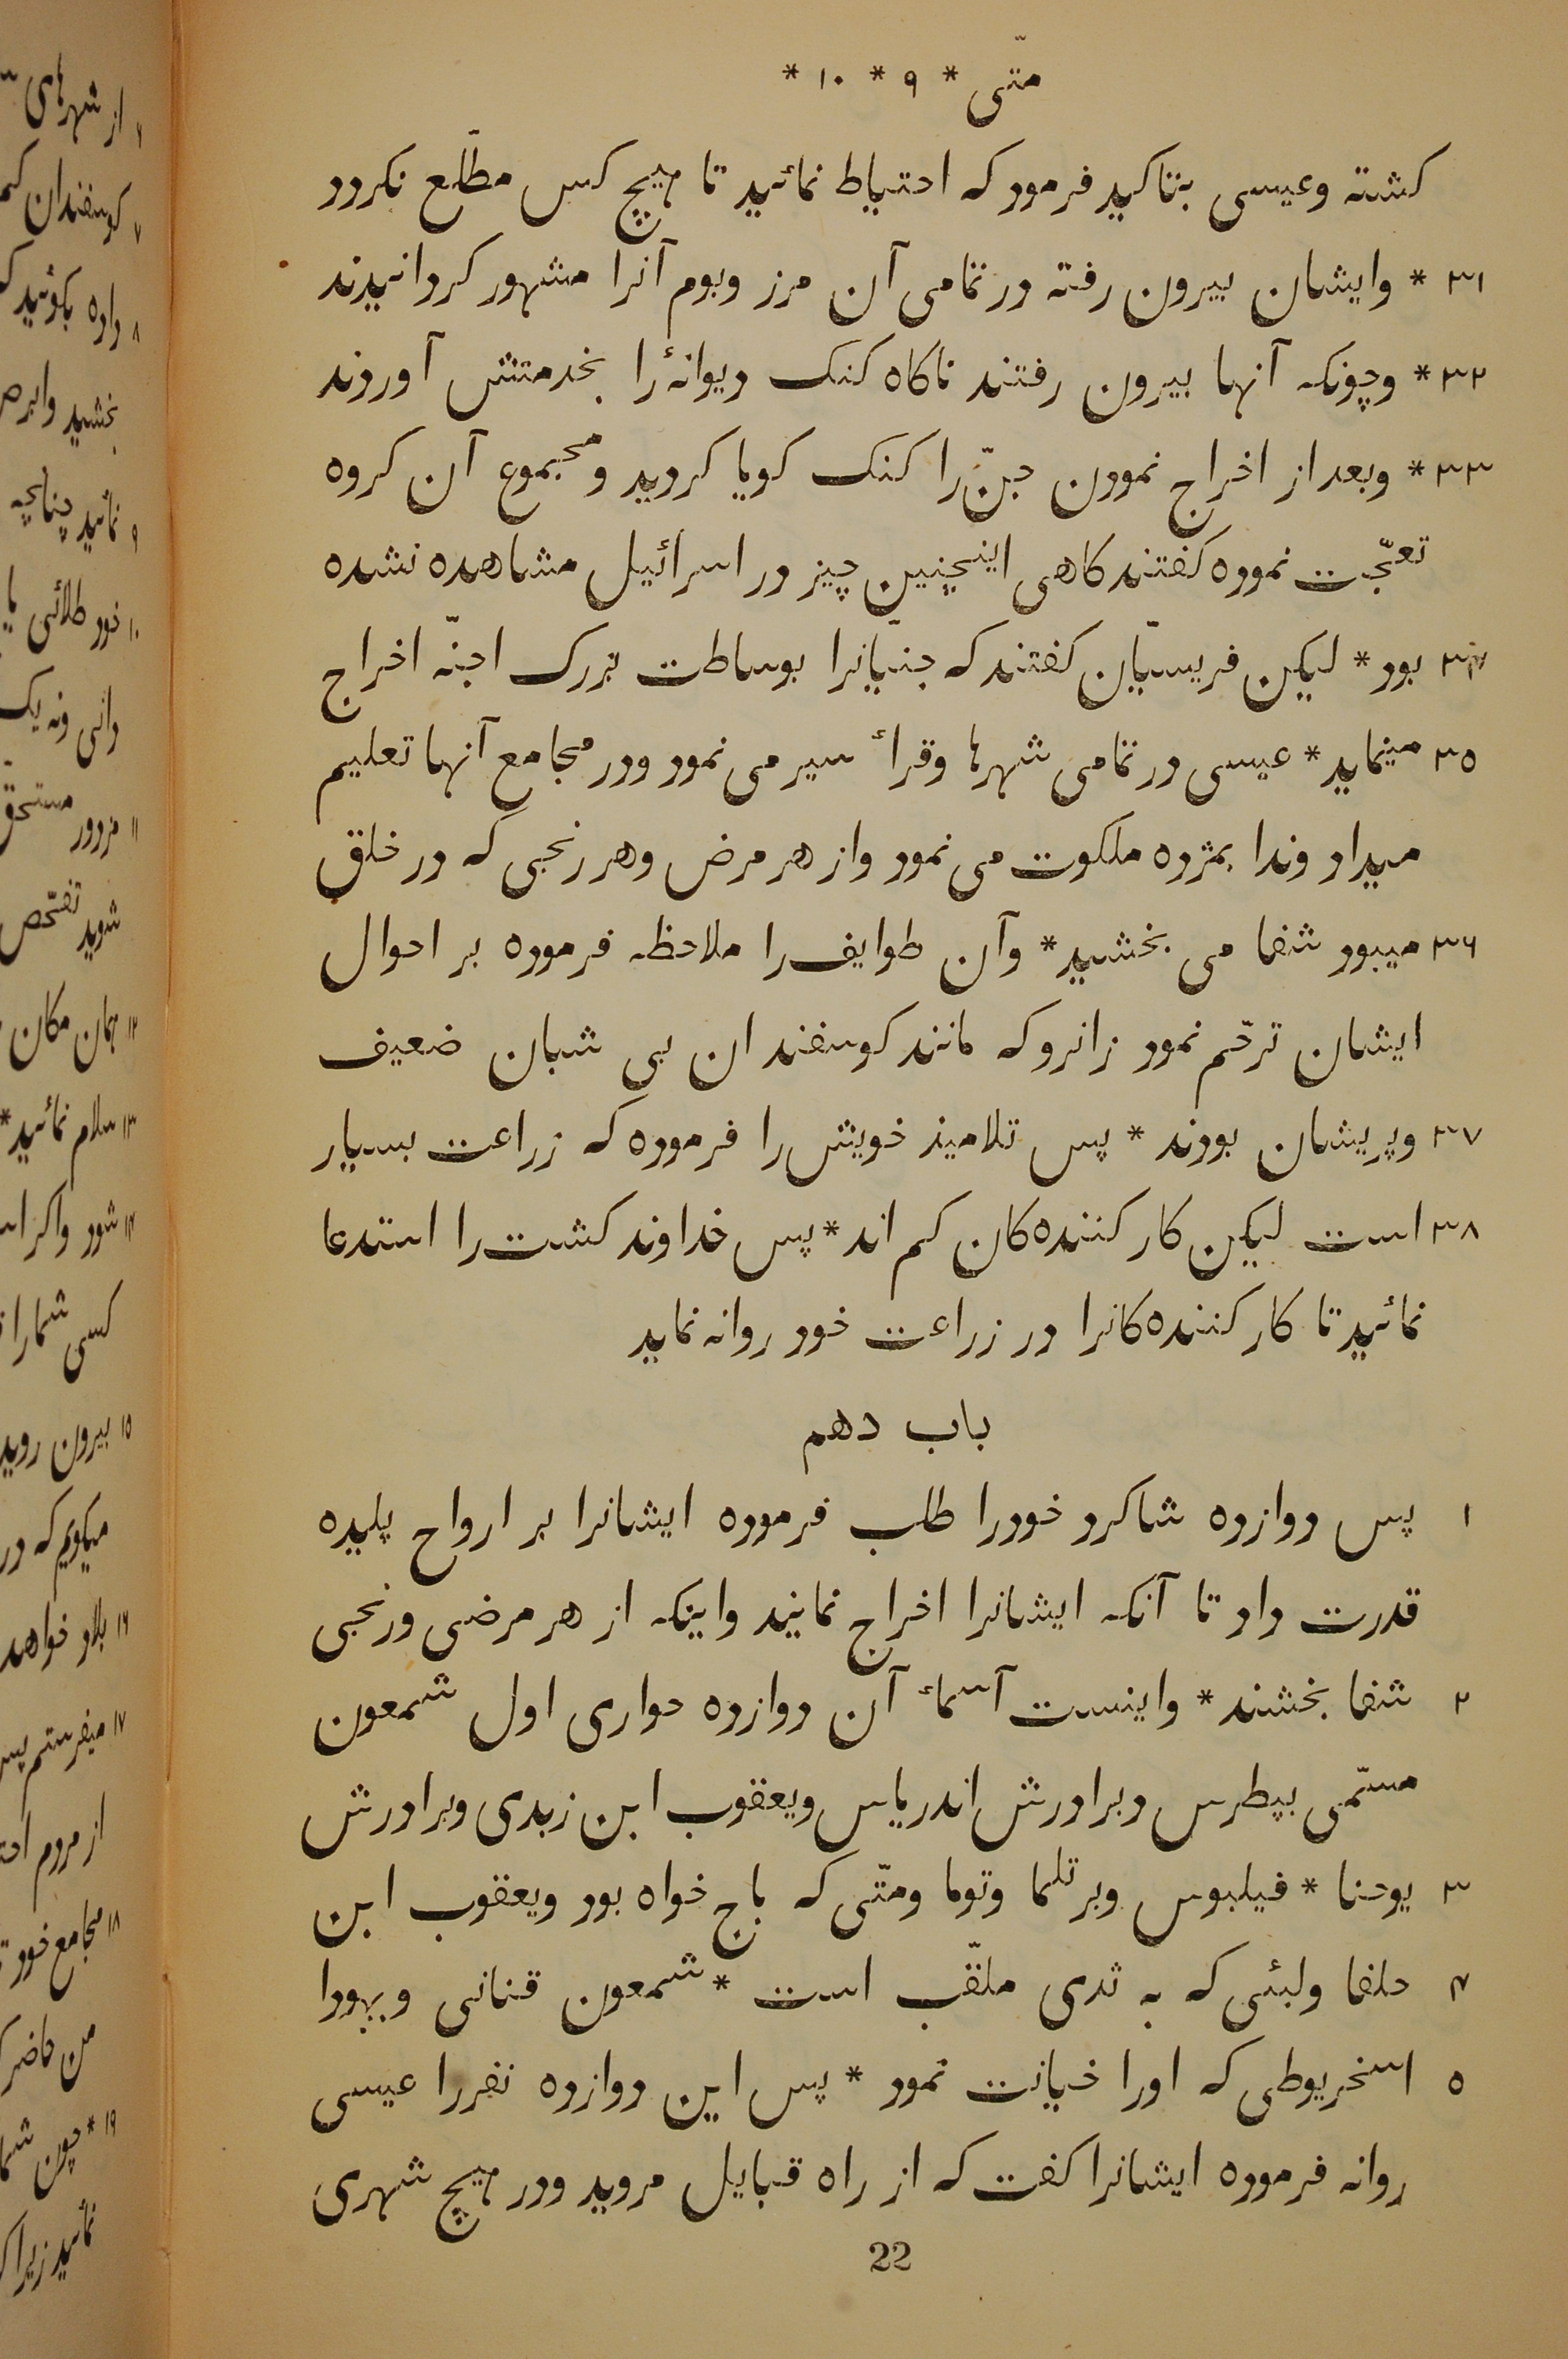 متّی * ۹ * ۱۰ *
کشته وعیسی بتاکید فرمود که احتیاط نمائید تا هیچ کس مطّلع نکردد
۳۱ * وایشان بیرون رفته در تمامی آن مرز وبوم آنرا مشهور کردانیدند
۳۲ * وچونکه آنها بیرون رفتند ناکاه کنک دیوانهٔ را بخدمتش آوردند
۳۳ * وبعد از اخراج نمودن جنّ را کنک کویا کردید ومجموع آن کروه
تعجّب نموده کفتند کاهی اینچنین چیز در اسرائیل مشاهده نشده
۳۴ بود * لیکن فریسیّان کفتند که جنّیانرا بوساطت بزرک اجنّه اخراج
۳۵ مینماید * عیسی در تمامی شهرها وقراء سیر می نمود ودر مجامع آنها تعلیم
میداد وندا بمژده ملکوت می نمود واز هر مرض وهر رنجی که در خلق
۳۶ میبود شفا می بخشید * وآن طوایف را ملاحظه فرموده بر احوال
ایشان ترحّم نمود زانرو که مانند کوسفندان بی شبان ضعیف
۳۷ وپریشان بودند * پس تلامیذ خویش را فرموده که زراعت بسیار
۳۸ است لیکن کار کننده کان کم اند * پس خداوند کشت را استدعا
نمائید تا کار کننده کانرا در زراعت خود روانه نماید
باب دهم
۱ پس دوازده شاکرد خودرا طلب فرموده ایشانرا بر ارواح پلیده
قدرت داد تا آنکه ایشانرا اخراج نمایند واینکه از هر مرضی ورنجی
۲ شفا بخشند * واینست آسماء آن دوازده حواری اول شمعون
مسمّی بپطرس وبرادرش اندریاس ویعقوب ابن زبدی وبرادرش
۳ یوحنا * فیلبوس وبرتلما وتوما ومتّی که باج خواه بود ویعقوب ابن
۴ حلفا ولبئی که به ثدی ملقّب است * شمعون قنانی ویهودا
۵ اسخریوطی که اورا خیانت نمود * پس این دوازده نفررا عیسی
روانه فرموده ایشانرا کفت که از راه قبایل مروید ودر هیچ شهری
22